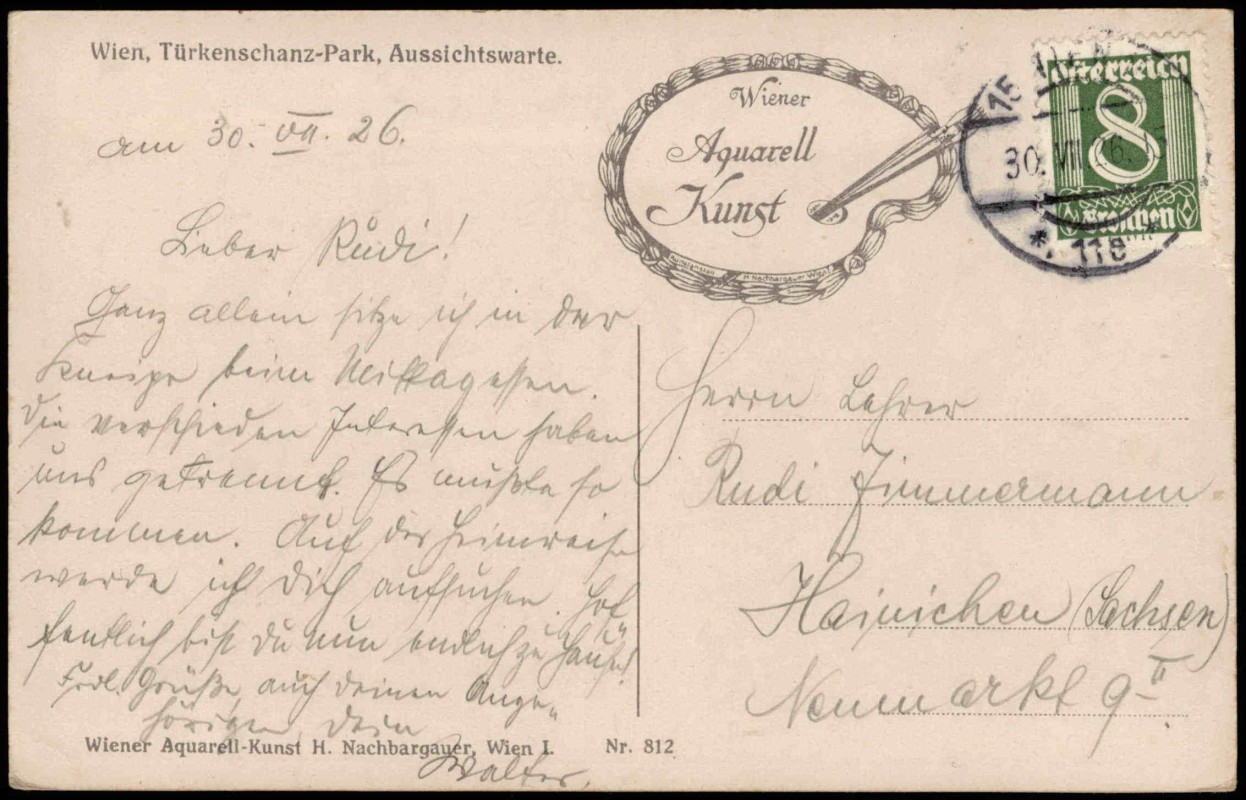 Wien, Türkenschanz-Park, Aussichtswarte.
am 30. VII. 26.
Lieber Rudi!
Ganz allein sitze ich in der
Kneipe beim Mittagessen.
Die verschieden Interessen haben
uns getrennt. Es mußte so
kommen. Auf der Heimreise
werde ich Dich aufsuchen. Hof„
fentlich bist Du nun endlich zu Hause!
Frdl. Grüße, auch Deinen Ange„
hörigen, Dein
Walter.
Wiener Aquarell-Kunst H. Nachbargauer, Wien I. Nr. 812
Wiener
Aquarell
Kunst
Kunstanstalt H. Nachbargauer Wien I
Österreich
8
Groschen
WIEN
30. VII. 26. 15
* 118 *
Herrn Lehrer
Rudi Zimmermann
Hainichen (Sachsen)
Neumarkt 9 II